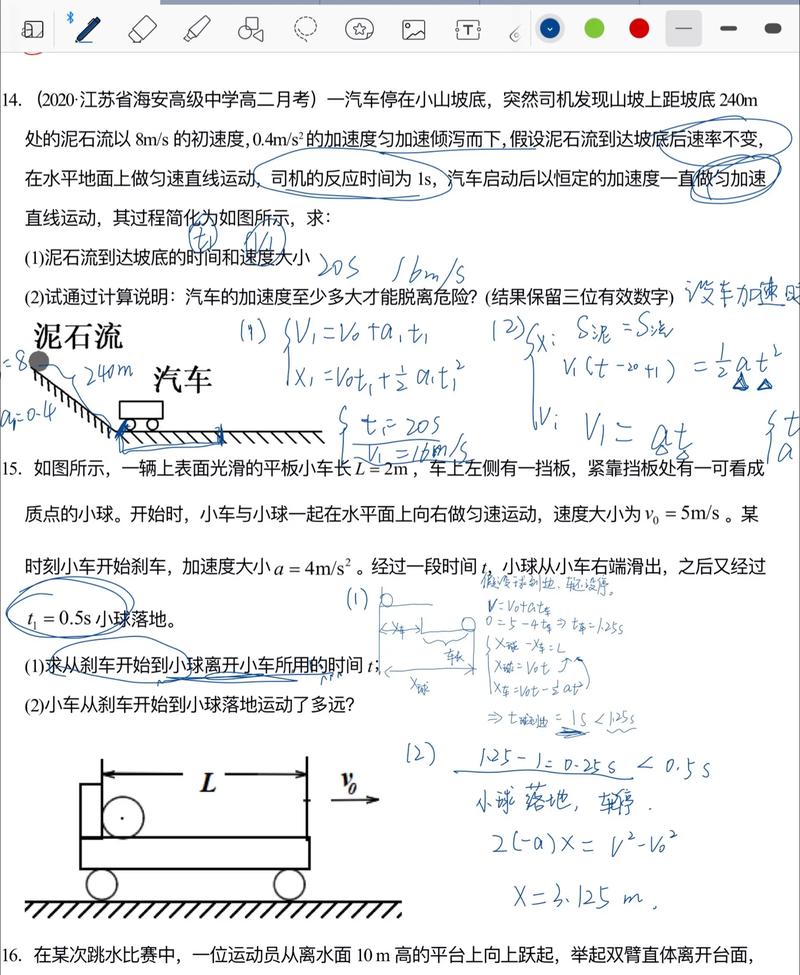 14. （2020·江苏省海安高级中学高二月考）一汽车停在小山坡底，突然司机发现山坡上距坡底 240m
处的泥石流以 8m/s 的初速度, 0.4m/s² 的加速度匀加速倾泻而下, 假设泥石流到达坡底后速率不变，
在水平地面上做匀速直线运动，司机的反应时间为 1s，汽车启动后以恒定的加速度一直做匀加速
直线运动，其过程简化为如图所示，求：
t₁ V₁
(1)泥石流到达坡底的时间和速度大小 20s 16m/s
(2)试通过计算说明：汽车的加速度至少多大才能脱离危险？(结果保留三位有效数字) 设车加速时
泥石流
汽车
=8
240m
a₁=0.4
(1) V₁=V₀+a₁t₁
x₁=V₀t₁+½a₁t₁²
t₁=20s
V₁=16m/s
(2) x:
V₁(t-20+1) = ½at²
V: V₁= at
t
a
15. 如图所示，一辆上表面光滑的平板小车长 L = 2m，车上左侧有一挡板，紧靠挡板处有一可看成
质点的小球。开始时，小车与小球一起在水平面上向右做匀速运动，速度大小为 v₀ = 5m/s 。某
时刻小车开始刹车，加速度大小 a = 4m/s² 。经过一段时间 t，小球从小车右端滑出，之后又经过
t₁ = 0.5s 小球落地。
(1)求从刹车开始到小球离开小车所用的时间 t；
(2)小车从刹车开始到小球落地运动了多远？
(1)
x车
车长
x球
V=V₀+at车
0=5-4t车⇒t车=1.25s
x球-x车=L
x球=V₀t
x车=V₀t-½at²
=1s<1.25s
(2) 1.25-1=0.25s < 0.5s
小球落地，车停.
2(-a)x = V²-V₀²
x=3.125 m.
L
v₀
16. 在某次跳水比赛中，一位运动员从离水面 10 m 高的平台上向上跃起，举起双臂直体离开台面，